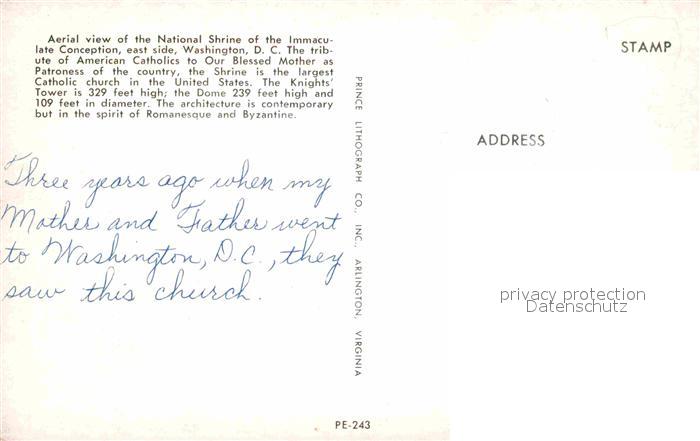 Aerial view of the National Shrine of the Immacu-
late Conception, east side, Washington, D. C. The trib-
ute of American Catholics to Our Blessed Mother as
Patroness of the country, the Shrine is the largest
Catholic church in the United States. The Knights'
Tower is 329 feet high; the Dome 239 feet high and
109 feet in diameter. The architecture is contemporary
but in the spirit of Romanesque and Byzantine.
Three years ago when my
Mother and Father went
to Washington, D.C., they
saw this church.
PRINCE LITHOGRAPH CO., INC., ARLINGTON, VIRGINIA
PE-243
STAMP
ADDRESS
privacy protection
Datenschutz